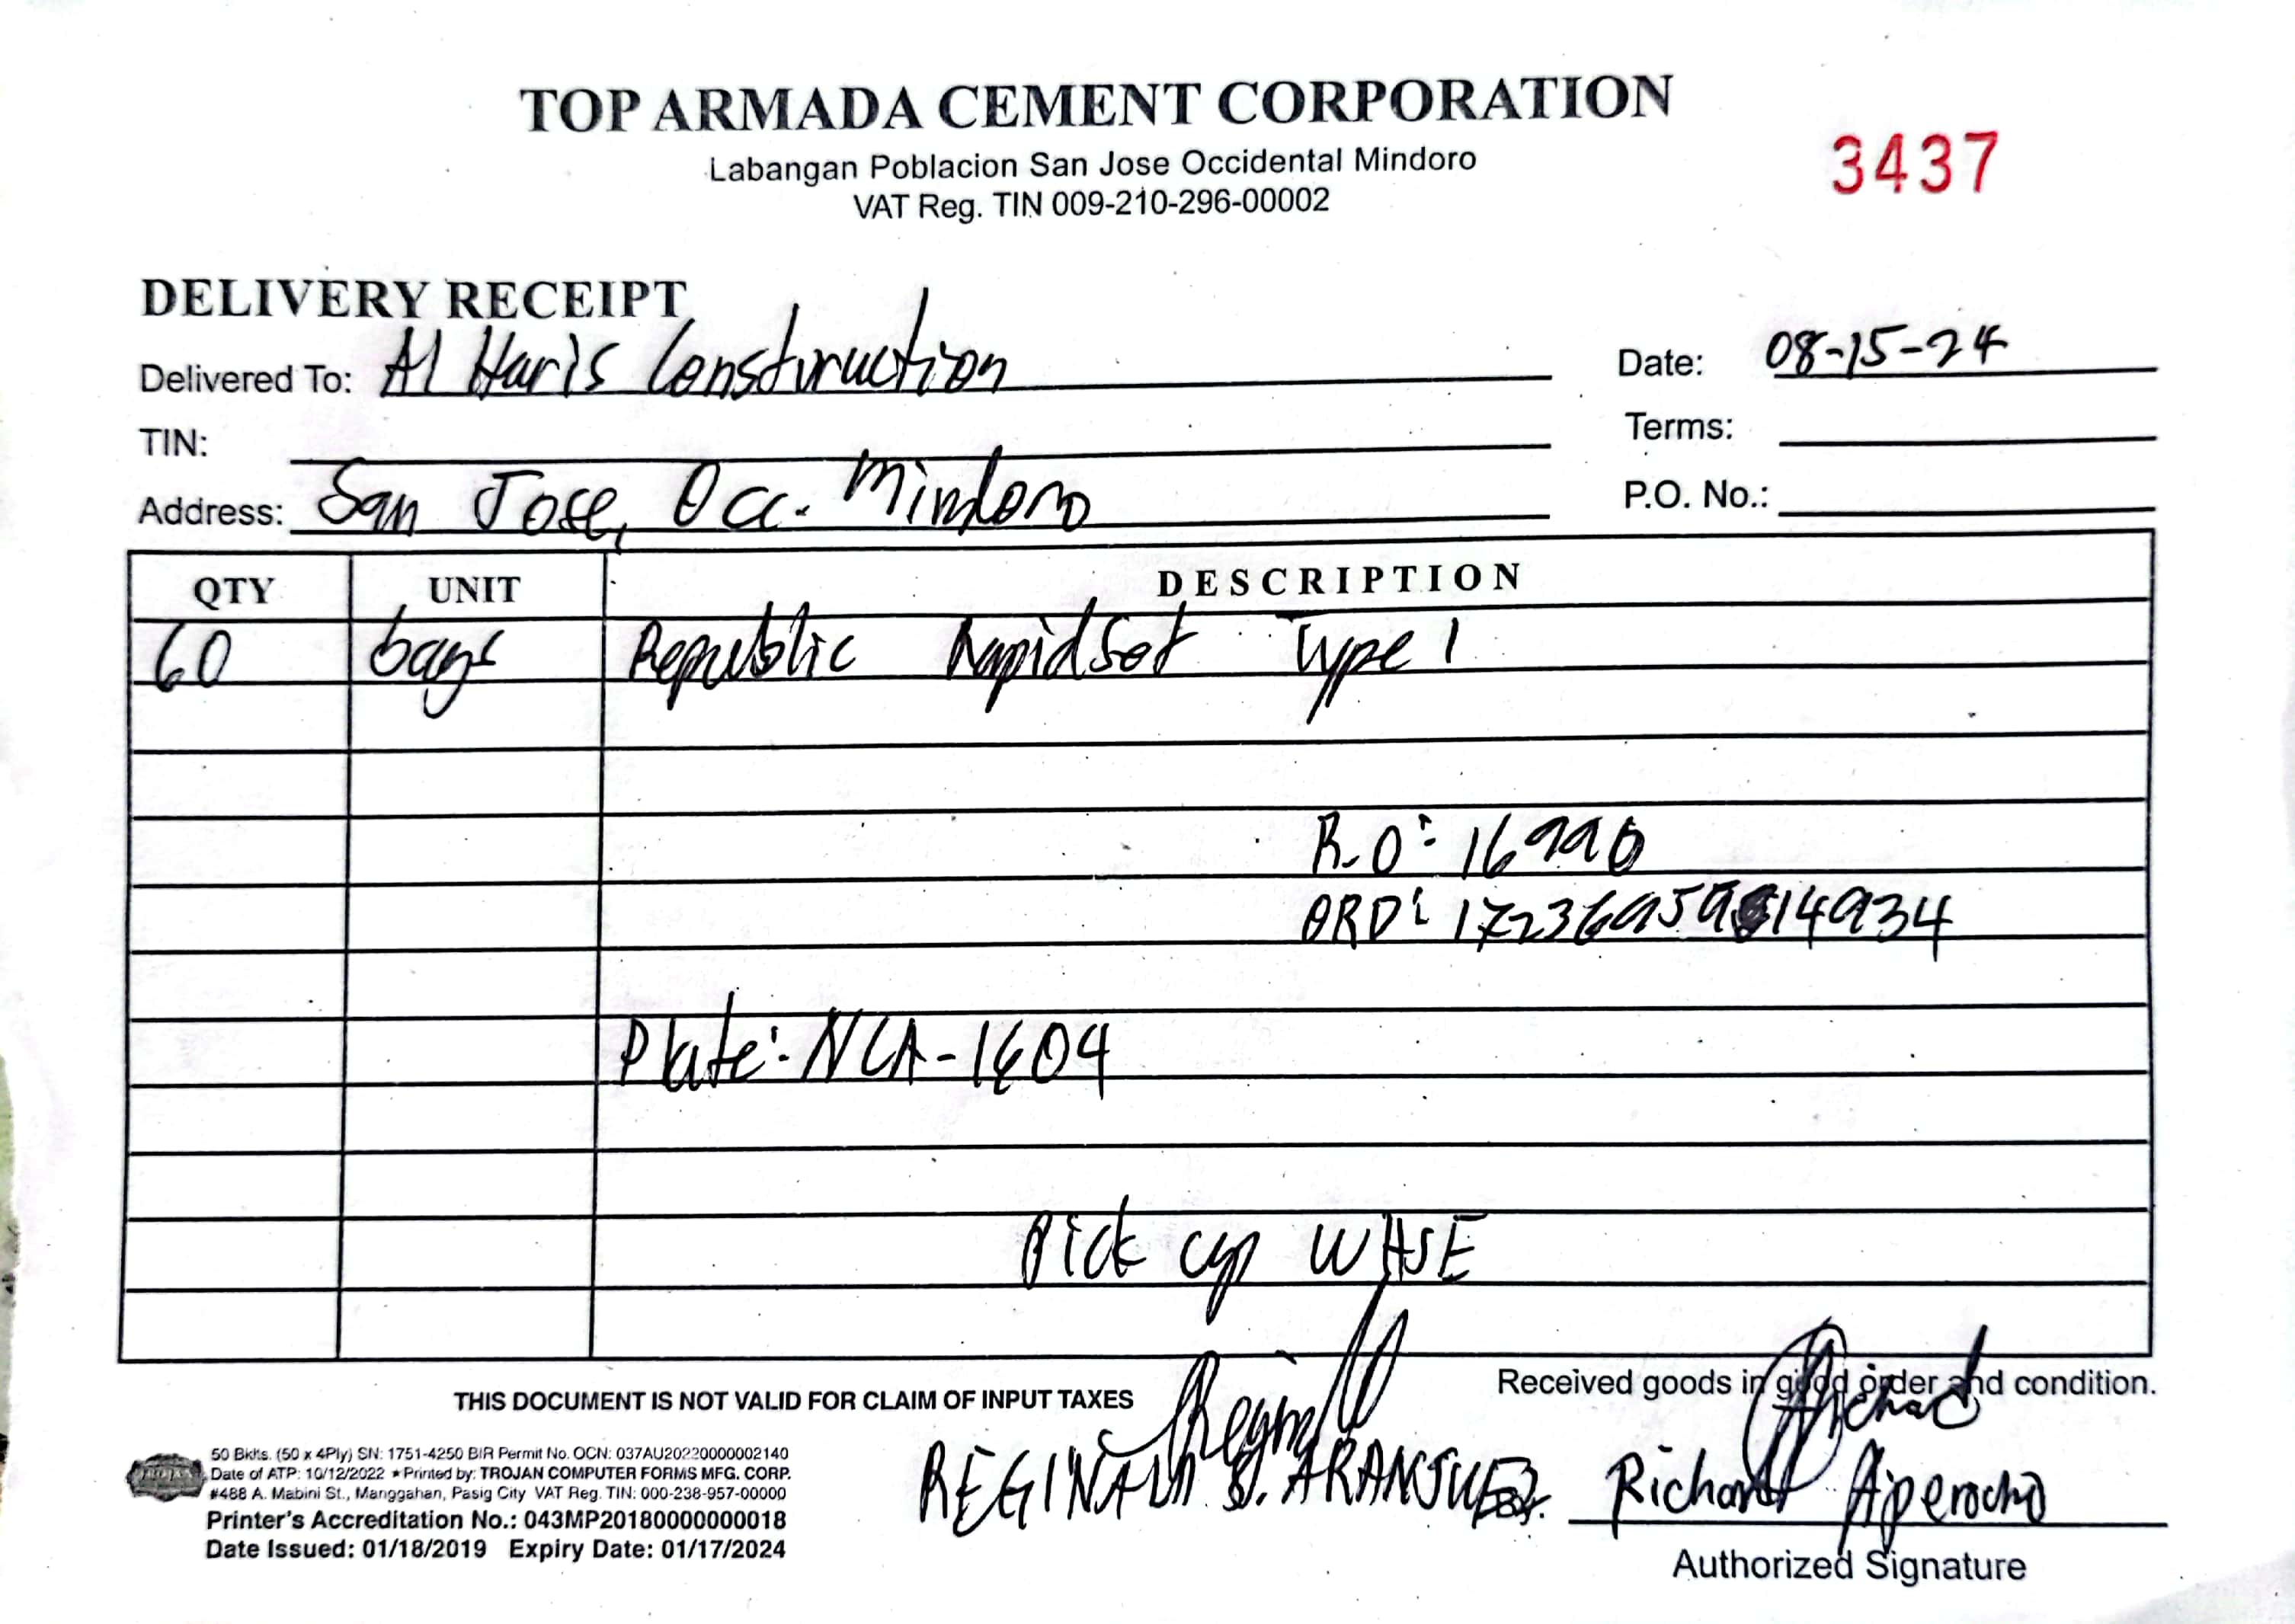 TOP ARMADA CEMENT CORPORATION
Labangan Poblacion San Jose Occidental Mindoro
VAT Reg. TIN 009-210-296-00002
3437
DELIVERY RECEIPT
Delivered To: Al Haris Construction
Date: 08-15-24
TIN:
Terms:
Address: San Jose, Occ. Mindoro
P.O. No.:
QTY UNIT DESCRIPTION
60 bags Republic RapidSet Type 1
R.O: 16990
ORD:
Plate:- NCA-1604
Pick up WHSE
Received goods in good order and condition.
THIS DOCUMENT IS NOT VALID FOR CLAIM OF INPUT TAXES
50 Bklts. (50 x 4Ply) SN: 1751-4250 BIR Permit No. OCN: 037AU20220000002140
Date of ATP: 10/12/2022 ★ Printed by: TROJAN COMPUTER FORMS MFG. CORP.
#488 A. Mabini St., Manggahan, Pasig City VAT Reg. TIN: 000-238-957-00000
Printer's Accreditation No.: 043MP20180000000018
Date Issued: 01/18/2019 Expiry Date: 01/17/2024
REGINALD S. ARANJUEZ
Richard Aperocho
Authorized Signature